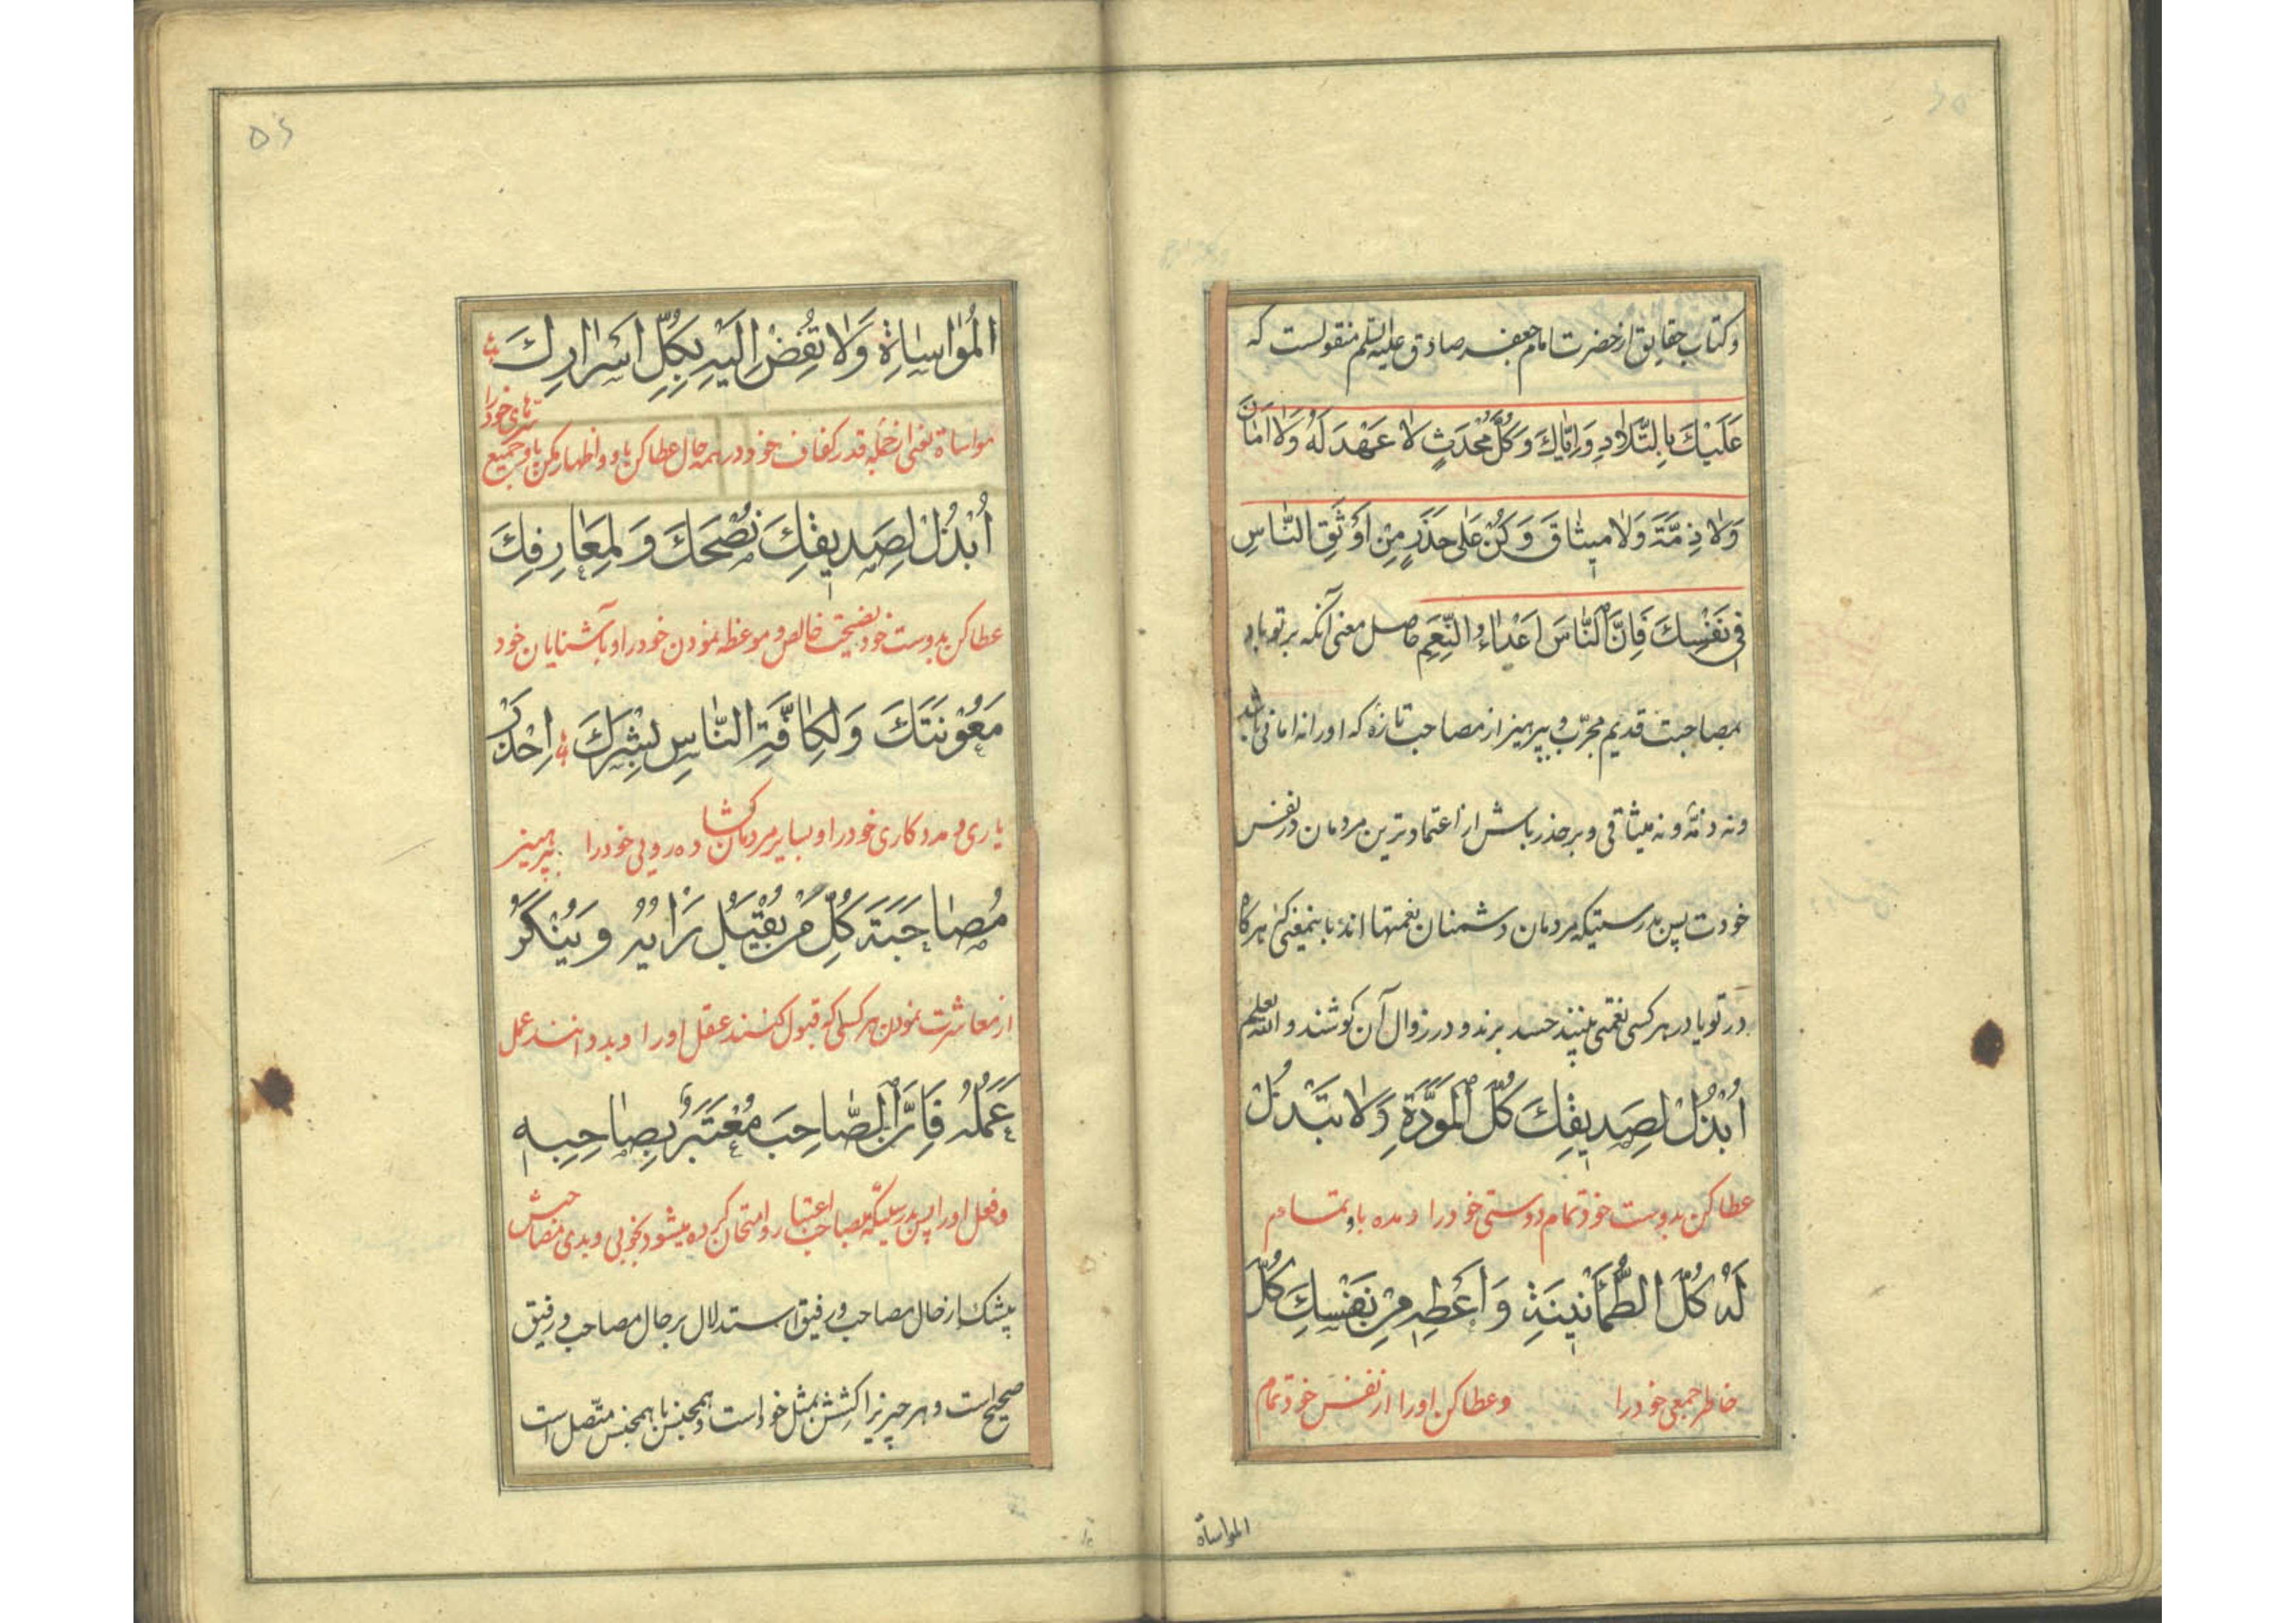 و کتاب حقایق از حضرت امام جعفر صادق علیه السلم منقولست که
عَلَیْكَ بِالتِّلَادِ وَاِیَّاكَ وَكُلَّ مُحْدَثٍ لَا عَهْدَ لَهُ وَلَا اَمَانَ
وَلَا ذِمَّةَ وَلَا مِیثَاقَ وَكُنْ عَلٰی حَذَرٍ مِنْ اَوْثَقِ النَّاسِ
فِی نَفْسِكَ فَاِنَّ النَّاسَ اَعْدَاءُ النِّعَمِ حاصل معنی آنکه بر تو باد
مصاحبت قدیم مجرّب و بپرهیز از مصاحب تازه که او را نه امانی باشد
و نه ذمّهٔ و نه میثاقی و بر حذر باش از اعتمادترین مردمان در نفس
خودت پس بدرستیکه مردمان دشمنان نعمتها اند باینمعنی که هر کاه
در تو یا در هر کسی نعمتی بینند حسد برند و در زوال آن کوشند و الله یعلم
اُبْذُلْ لِصَدِیقِكَ كُلَّ الْمَوَدَّةِ وَلَا تَبْذُلْ
عطا کن بدوست خود تمام دوستی خود را و مده باو تمام
لَهُ كُلَّ الطُّمَأْنِینَةِ وَاَعْطِهِ مِنْ نَفْسِكَ كُلَّ
خاطر جمعی خود را و عطا کن او را از نفس خود تمام
المواساة
٥٤
الْمُوَاسَاةِ وَلَا تُفِضْ اِلَیْهِ بِكُلِّ اَسْرَارِكَ
مواساة یعنی از جمله قدر کفاف خود در همه حال عطا کن باو و اظهار مکن باو جمیع
سرّهای خود را
اُبْذُلْ لِصَدِیقِكَ نُصْحَكَ وَلِمَعَارِفِكَ
عطا کن بدوست خود نصیحت خالص و موعظه نمودن خود را و بآشنایان خود
مَعُوْنَتَكَ وَلِكَافَّةِ النَّاسِ بِشْرَكَ اِحْذَرْ
یاری و مددکاری خود را و بسایر مردمان کشاده رویی خود را بپرهیز
مُصَاحَبَةَ كُلِّ مَنْ یُقْبَلُ رَاْیُهُ وَیُنْكَرُ
از معاشرت نمودن هر کسی که قبول کنند عقل او را و بد دانند عمل
عَمَلُهُ فَاِنَّ الصَّاحِبَ مُعْتَبَرٌ بِصَاحِبِهِ
و فعل او را پس بدرستیکه مصاحب اعتبار و امتحان کرده میشود بخوبی و بدی مصاحبش
بیشک از حال مصاحب و رفیق استدلال بر حال مصاحب و رفیق
صحیح است و هر چیز را کشش بمثل خود است و همجنس با همجنس متّصل است